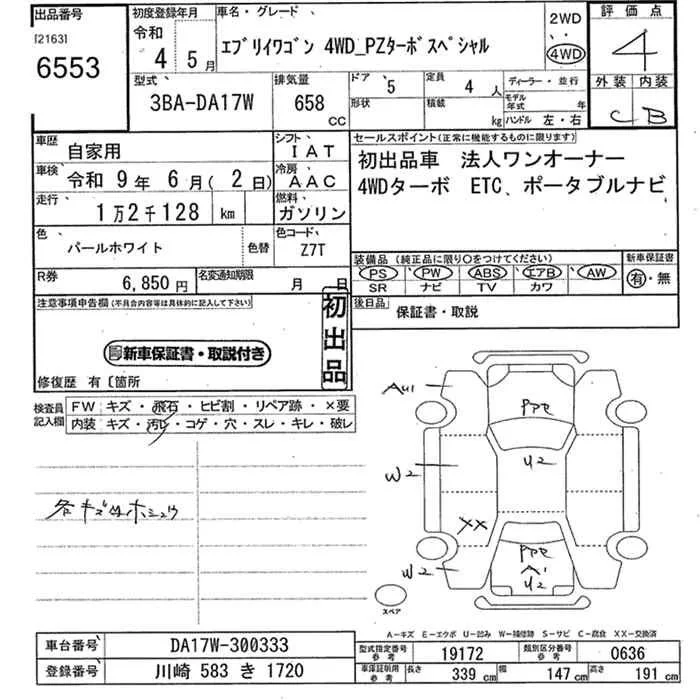 出品番号
[2163]
6553
初度登録年月
令和
4 年 5 月
車名・グレード
エブリイワゴン 4WD_PZターボスペシャル
2WD
4WD
評価点
4
型式
3BA-DA17W
排気量
658
CC
ドア
5
形状
定員
4 人
積載
kg
ディーラー・並行
モデル年式
年
ハンドル 左・右
外装 内装
C B
車歴
自家用
シフト
IAT
車検 令和 9 年 6 月( 2 日)
冷房
AAC
走行
1万2千128 km
燃料
ガソリン
色
パールホワイト
色替
色コード
Z7T
セールスポイント(正常に機能するものに限ります)
初出品車 法人ワンオーナー
4WDターボ ETC、ポータブルナビ
装備品 (純正品に限り○をつけてください)
PS PW ABS エアB AW
SR ナビ TV カワ
新車保証書
有・無
R券
6,850 円
名変通知期限
月 日
後日品
保証書・取説
注意事項申告欄(不具合内容等は具体的に記入して下さい)
新車保証書・取説付き
初出品
修復歴 有〔箇所
検査員記入欄
FW キズ・飛石・ヒビ割・リペア跡・×要
内装 キズ・汚レ・コゲ・穴・スレ・キレ・破レ
各キズ
AU1
PPE
W2
U2
XX
W2
PPE
A1
U2
スペア
A-キズ E-エクボ U-凹み W-補修跡 S-サビ C-腐食 XX-交換済
車台番号
DA17W-300333
登録番号
川崎 583 き 1720
型式指定番号
参考
19172
類別区分番号
参考
0636
車庫証明用
参考
長さ
339 cm
幅
147 cm
高さ
191 cm